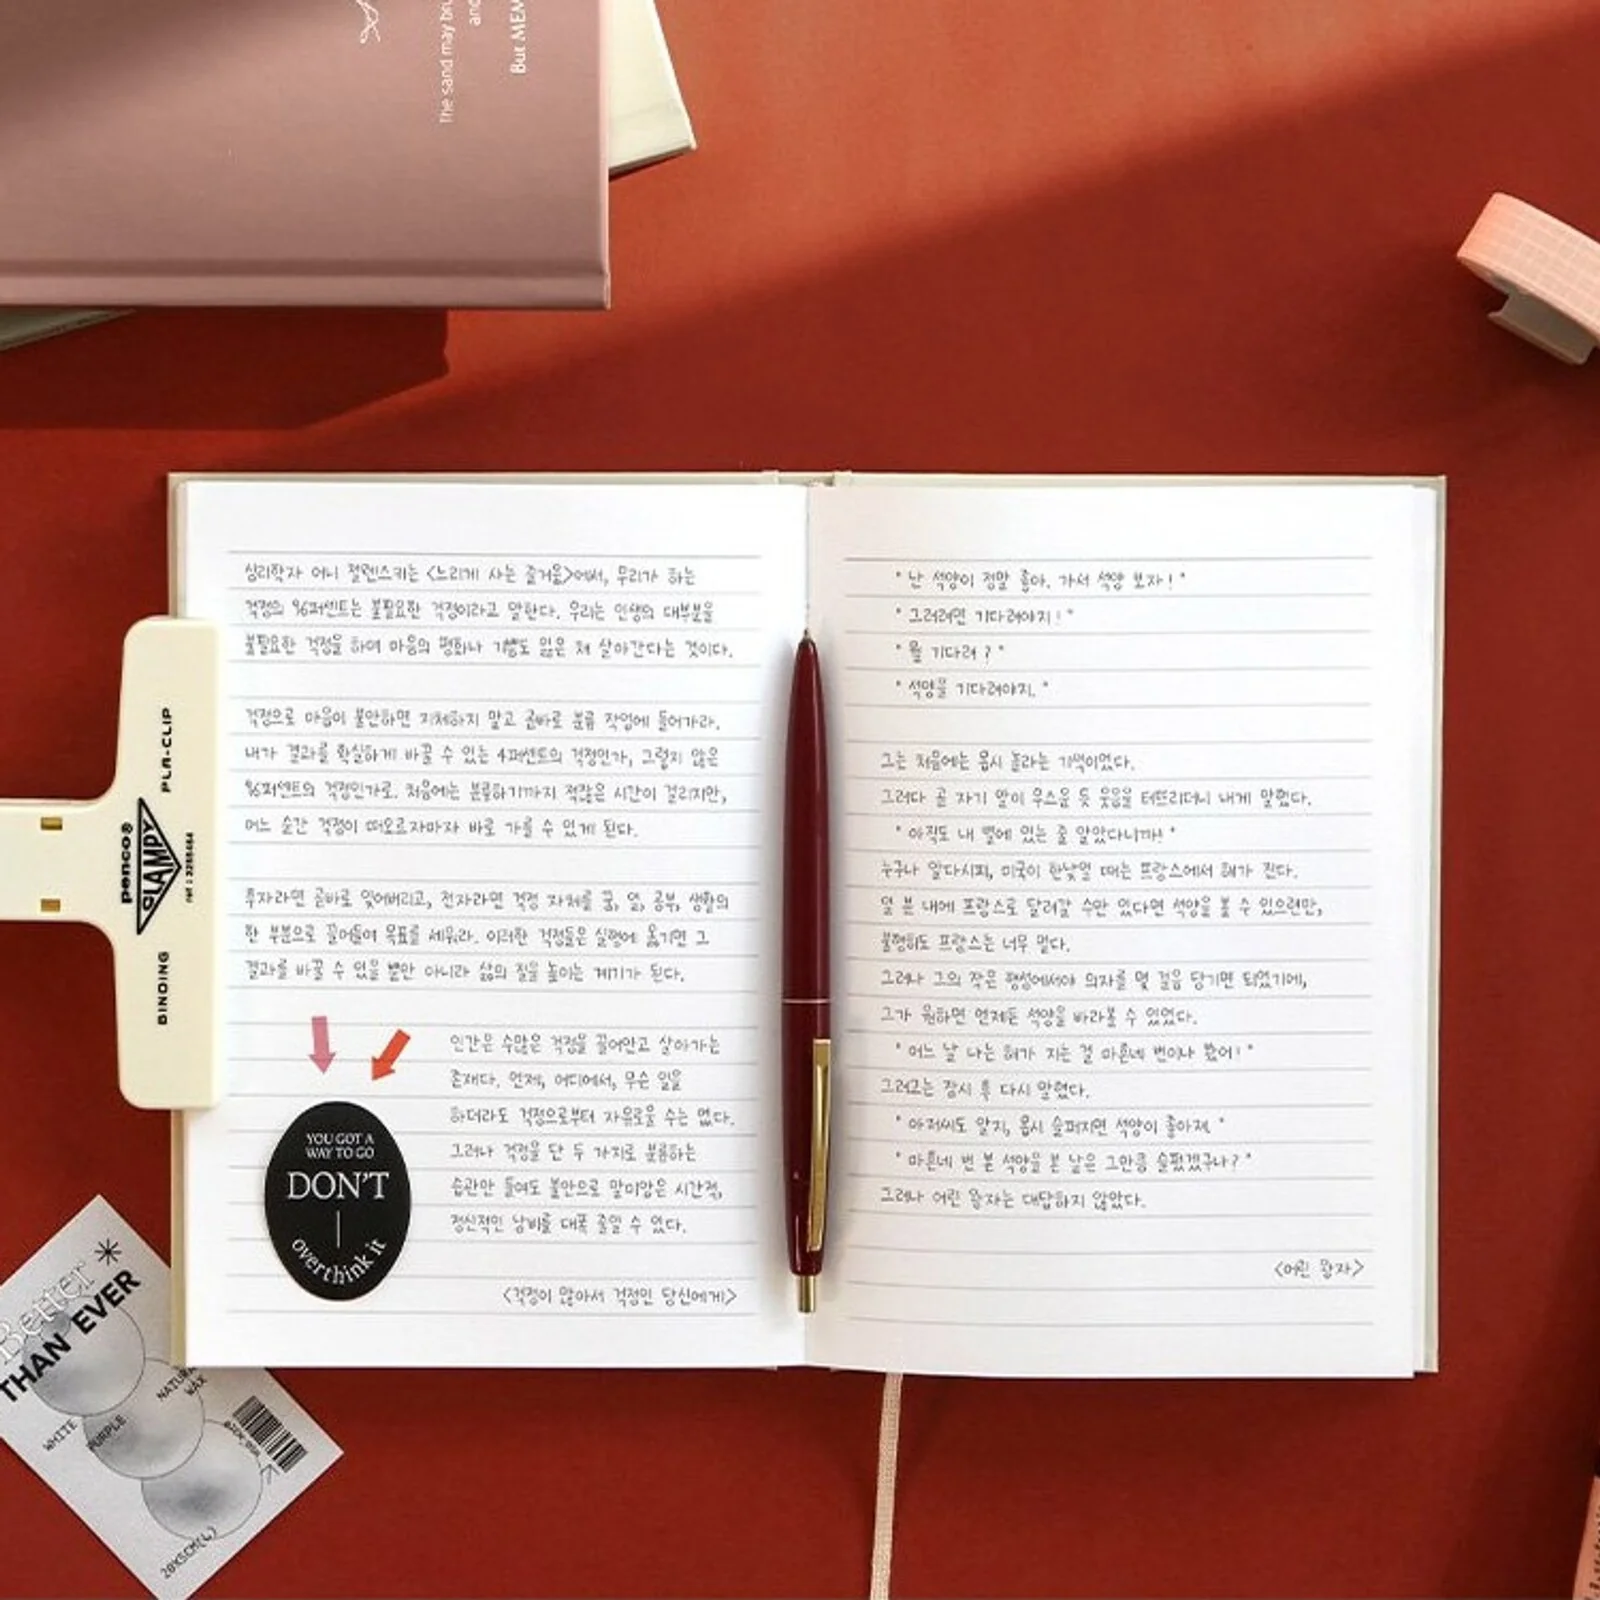 The sand may bru
and
But MEM
심리학자 어니 젤렌스키는 <느리게 사는 즐거움>에서, 우리가 하는
걱정의 96퍼센트는 불필요한 걱정이라고 말한다. 우리는 인생의 대부분을
불필요한 걱정을 하며 마음의 평화나 기쁨도 잃은 채 살아간다는 것이다.
걱정으로 마음이 불안하면 지체하지 말고 곧바로 분류 작업에 들어가라.
내가 결과를 확실하게 바꿀 수 있는 4퍼센트의 걱정인가, 그렇지 않은
96퍼센트의 걱정인가로. 처음에는 분류하기까지 적잖은 시간이 걸리지만,
어느 순간 걱정이 떠오르자마자 바로 가를 수 있게 된다.
후자라면 곧바로 잊어버리고, 전자라면 걱정 자체를 꿈, 일, 공부, 생활의
한 부분으로 끌어들여 목표를 세워라. 이러한 걱정들은 실행에 옮기면 그
결과를 바꿀 수 있을 뿐만 아니라 삶의 질을 높이는 계기가 된다.
인간은 수많은 걱정을 끌어안고 살아가는
존재다. 언제, 어디에서, 무슨 일을
하더라도 걱정으로부터 자유로울 수는 없다.
그러나 걱정을 단 두 가지로 분류하는
습관만 들여도 불안으로 말미암은 시간적,
정신적인 낭비를 대폭 줄일 수 있다.
<걱정이 많아서 걱정인 당신에게>
YOU GOT A
WAY TO GO
DON'T
overthink it
" 난 석양이 정말 좋아. 가서 석양 보자! "
" 그러려면 기다려야지! "
" 뭘 기다려? "
" 석양을 기다려야지. "
그는 처음에는 몹시 놀라는 기색이었다.
그러다 곧 자기 말이 우스운 듯 웃음을 터뜨리더니 내게 말했다.
" 아직도 내 별에 있는 줄 알았다니까! "
누구나 알다시피, 미국이 한낮일 때는 프랑스에서 해가 진다.
일 분 내에 프랑스로 달려갈 수만 있다면 석양을 볼 수 있으련만,
불행히도 프랑스는 너무 멀다.
그러나 그의 작은 행성에서야 의자를 몇 걸음 당기면 되었기에,
그가 원하면 언제든 석양을 바라볼 수 있었다.
" 어느 날 나는 해가 지는 걸 마흔네 번이나 봤어! "
그러고는 잠시 후 다시 말했다.
" 아저씨도 알지, 몹시 슬퍼지면 석양이 좋아져. "
" 마흔네 번 본 석양을 본 날은 그만큼 슬펐겠구나? "
그러나 어린 왕자는 대답하지 않았다.
<어린 왕자>
PLA-CLIP
penco®
CLAMPY
ref : 3255464
BINDING
Better
THAN EVER
NATURAL
WAX
WHITE
PURPLE
20X5CM(L)